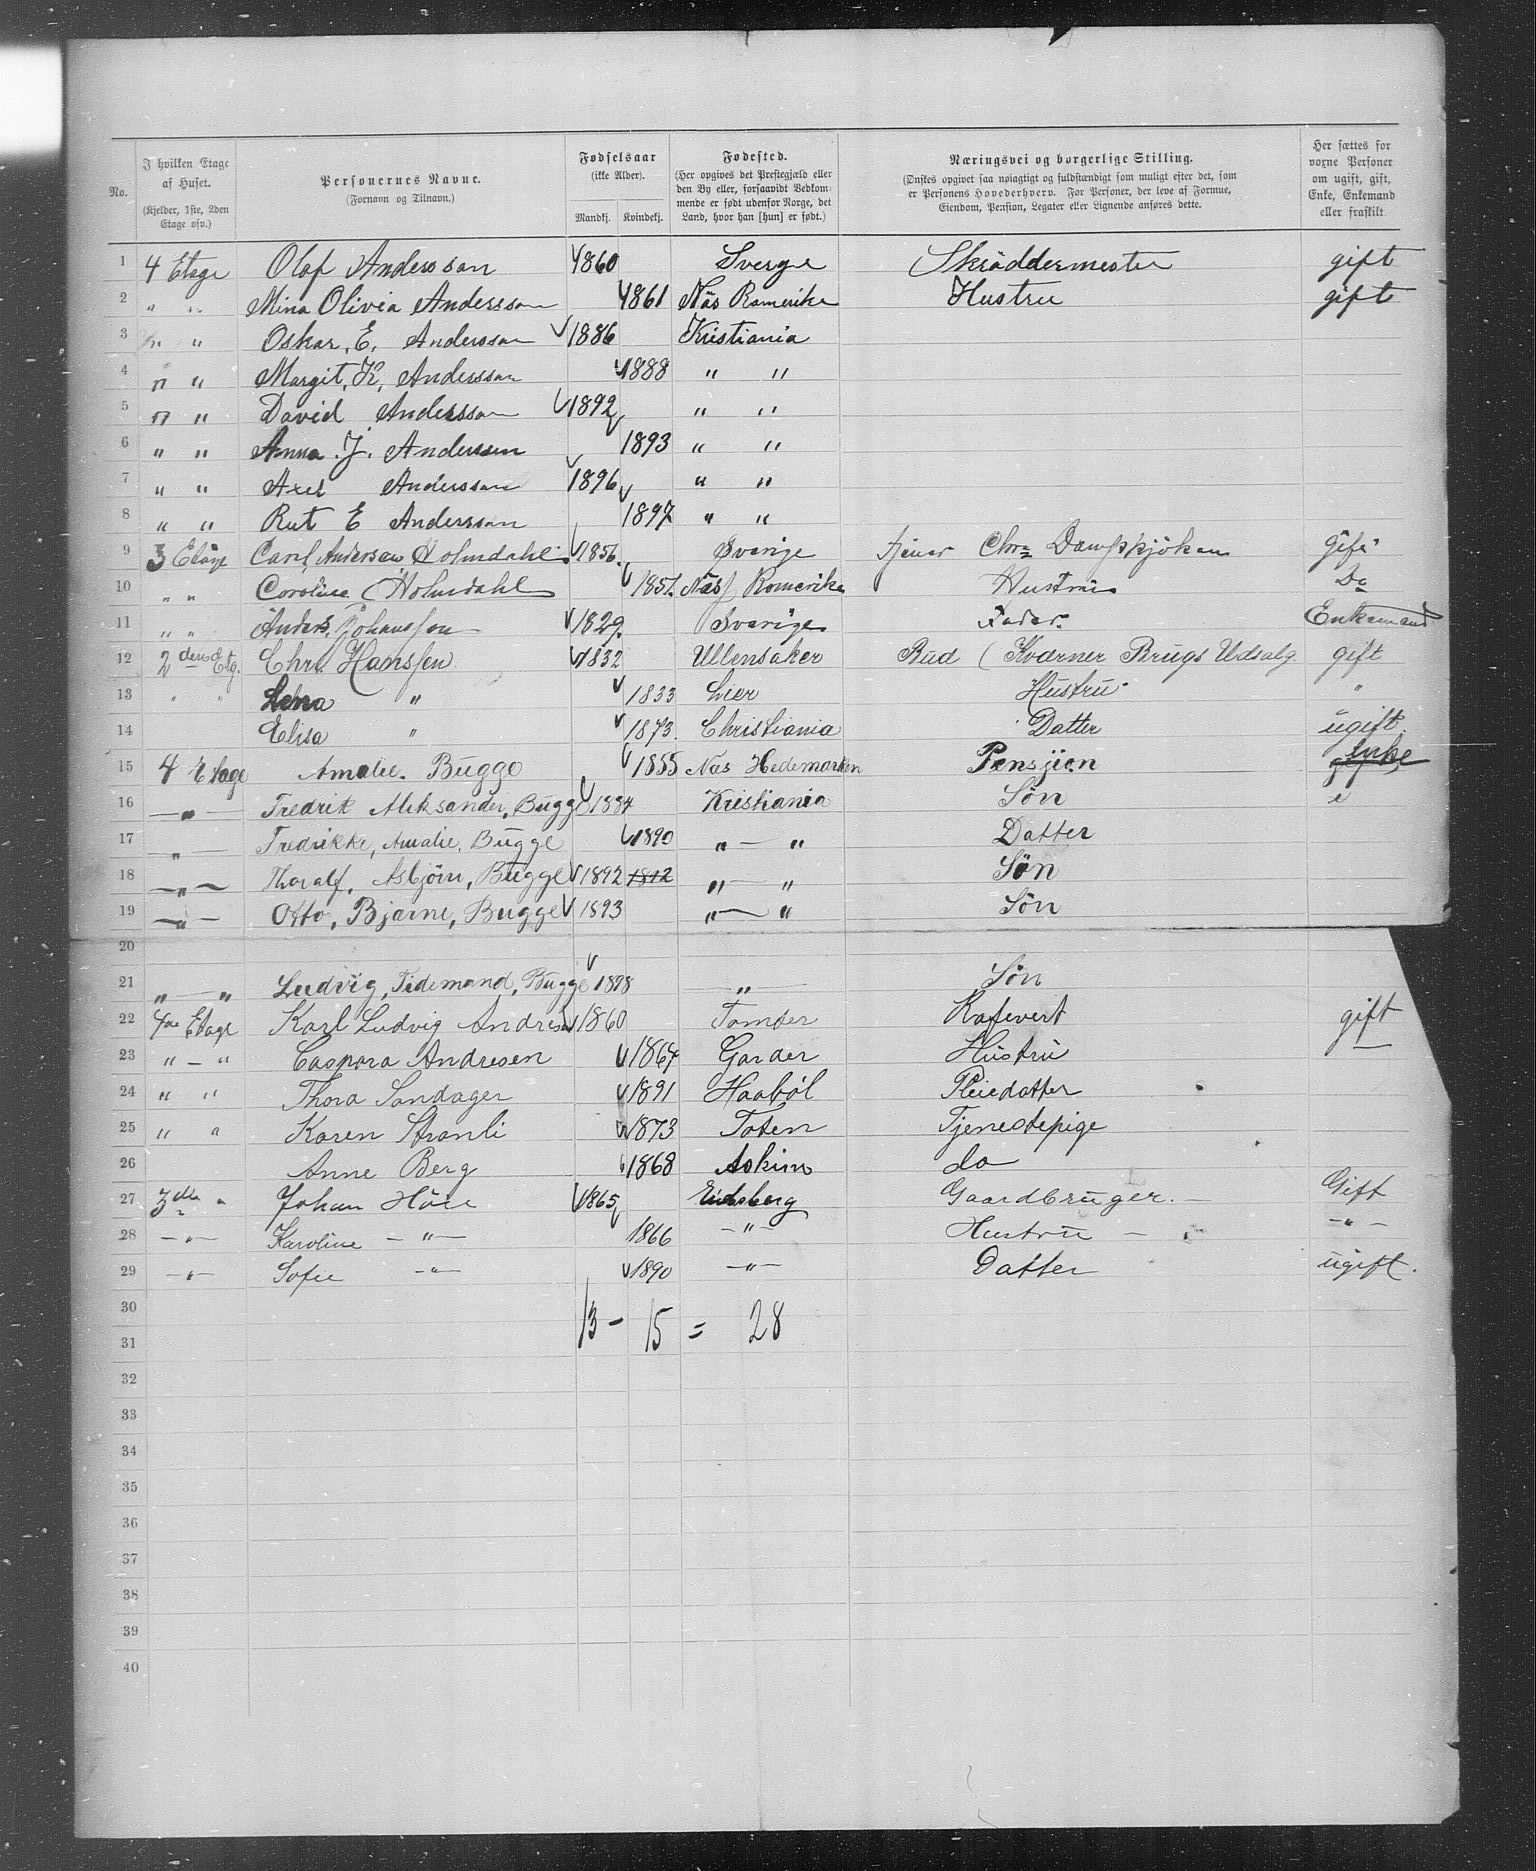 No.
I hvilken Etage
af Huset.
(Kjelder, 1ste, 2den
Etage osv.)
Personernes Navne.
(Fornavn og Tilnavn.)
Fødselsaar
(ikke Alder).
Mandkj. Kvindekj.
Fødested.
(Her opgives det Prestegjæld eller
den By eller, forsaavidt Vedkom
mende er født udenfor Norge, det
Land, hvor han [hun] er født.)
Næringsvei og borgerlige Stilling.
(Ønskes opgivet saa nøiagtigt og fuldstændigt som muligt efter det, som
er Personens Hovederhverv. For Personer, der leve af Formue,
Eiendom, Pension, Legater eller Lignende anføres dette.
Her sættes for
voxne Personer
om ugift, gift,
Enke, Enkemand
eller fraskilt.
1 4 Etage Olof Andersson 1860 Sverge Skräddermester gift
2 " " Mina Olivia Andersson 1861 Näs Romerike Hustru gift
3 " " Oskar, E, Andersson 1886 Kristiania
4 " " Margit, K, Andersson 1888 " "
5 " " David Andersson 1892 " "
6 " " Anna. J. Andersson 1893 " "
7 " " Axel Andersson 1896 " "
8 " " Rut E Andersson 1897 " "
9 3 Etage Carl, Andersen Holmdahl 1856. Sverige tjener Chra Dampkjöken gift
10 " " Caroline Holmdahl 1857. Näs Romerike Hustru Do
11 " " Anders, Johansson 1829. Sverige Fader. Enkemand
12 2den Etg. Chr. Hanssen 1832 Ullensaker Bud (Kværner Brugs Udsalg. gift
13 " " Lena " 1833 Lier Hustru "
14 Elisa " 1873. Christiania Datter ugift.
15 4 Etage Amalie. Bugge 1855 Nas Hedemarken Pensjion Enke
16 — " — Fredrik Aleksander, Bugge 1884 Kristiania Søn
17 — " — Fredrikke, Amalie, Bugge 1890 " — " Datter
18 — " — Thoralf, Asbjørn, Bugge 1892 1892 " — " Søn
19 — " — Otto, Bjarne, Bugge 1893 " — " Søn
20
21 " — " Ludvig, Tidemand, Bugge 1898 — " — Søn
22 4de Etage Karl Ludvig Andresen 1860 Kafevert gift
23 " — " Caspora Andresen 1864 Garder Hustru —
24 " " Thora Sandager 1891 Haabøl Pleiedatter
25 " " Karen Stranli 1873 Toten Tjenestepige
26 Anne Berg 1868 Askim do
27 3de " Johan Höie 1865 Eidsberg Gaardbruger. — Gift
28 — " — Karoline — " — 1866 — " — Hustru — — " —
29 — " — Sofie — " — 1890 — " — Datter ugift.
30
13 — 15 = 28
31
32
33
34
35
36
37
38
39
40